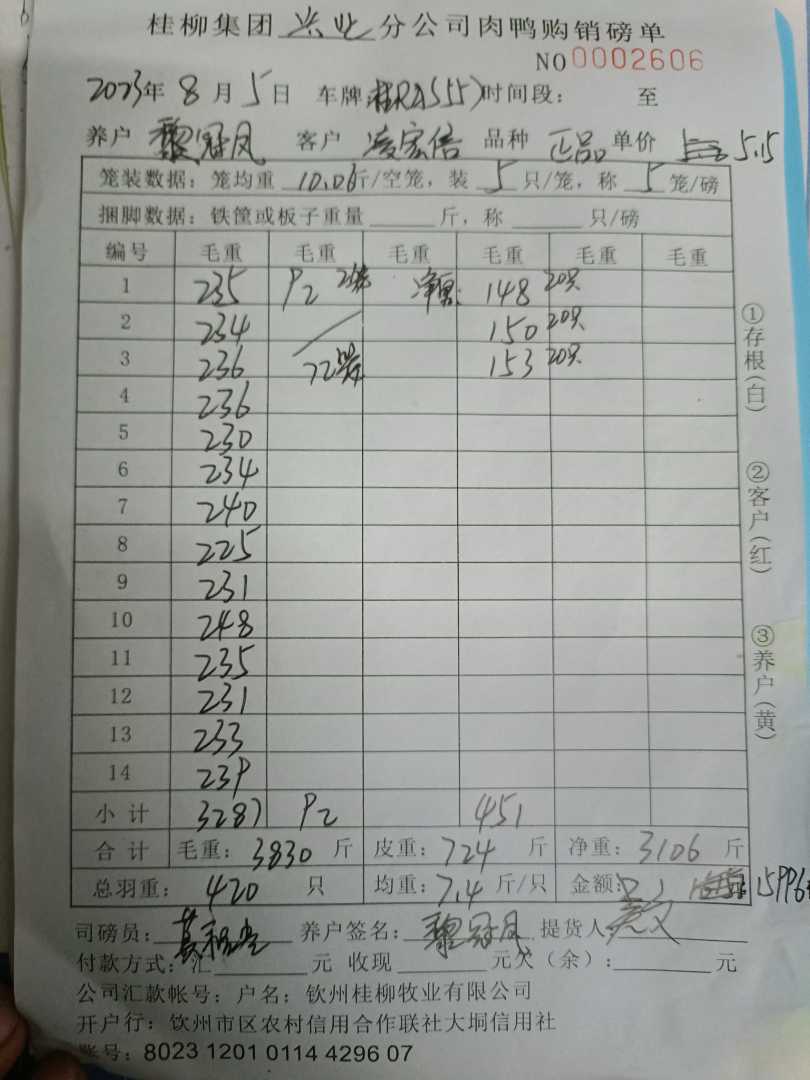 桂柳集团 兴业 分公司肉鸭购销磅单
NO 0002606
2023年 8 月 5 日 车牌: 时间段: 至
养户 黎冠凤 客户 凌宏倍 品种 正品 单价 5.15
笼装数据: 笼均重 10.06 斤/空笼, 装 5 只/笼, 称 5 笼/磅
捆脚数据: 铁筐或板子重量 斤, 称 只/磅
编号 毛重 毛重 毛重 毛重 毛重 毛重
1 235 92 2笼 净重: 148 20只
2 234 150 20只
3 236 72笼 153 20只
4 236
5 230
6 234
7 240
8 225
9 231
10 248
11 235
12 231
13 233
14 239
小计 3287 92 451
合计 毛重: 3830 斤 皮重: 724 斤 净重: 3106 斤
总羽重: 420 只 均重: 7.4 斤/只 金额: 15996
司磅员: 养户签名: 黎冠凤 提货人
付款方式: 汇 元 收现 元欠(余): 元
公司汇款帐号: 户名: 钦州桂柳牧业有限公司
开户行: 钦州市区农村信用合作联社大垌信用社
账号: 8023 1201 0114 4296 07
①存根(白)
②客户(红)
③养户(黄)